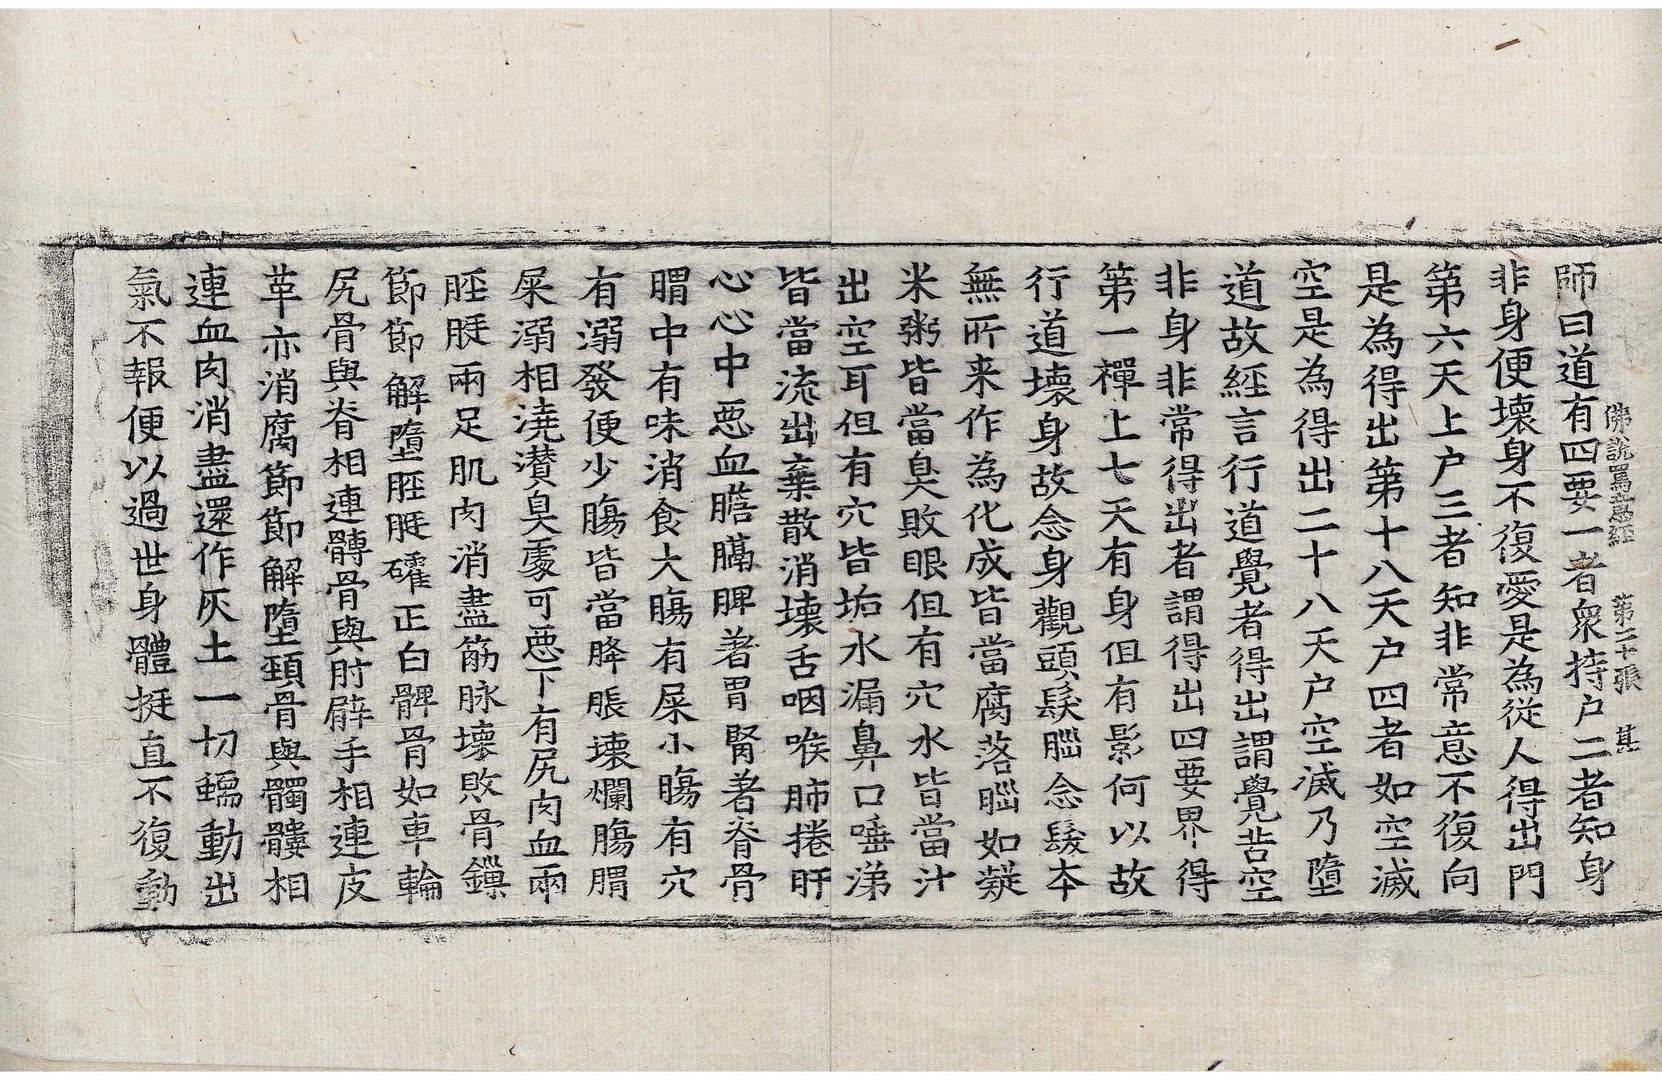 佛說罵意經 第二十張 甚
師曰道有四要一者衆持户二者知身
非身便壞身不復愛是為從人得出門
第六天上户三者知非常意不復向
是為得出第十八天户四者如空滅
空是為得出二十八天户空滅乃墮
道故經言行道覺者得出謂覺苦空
非身非常得出者謂得出四要界得
第一禪上七天有身但有影何以故
行道壞身故念身觀頭髮腦念髮本
無所来作為化成皆當腐落腦如凝
米粥皆當臭敗眼但有穴水皆當汁
出空耳但有穴皆垢水漏鼻口唾涕
皆當流出棄散消壞舌咽喉肺捲肝
心心中惡血膽膈脾著胃腎著脊骨
胃中有味消食大腸有屎小腸有穴
有溺發便少腸皆當降脹壞爛腸胃
屎溺相澆灒臭處可惡下有尻肉血兩
胵脡兩足肌肉消盡筋脉壞敗骨鏁
節節解墮胵脡礭正白髀骨如車輪
尻骨與脊相連髆骨與肘臂手相連皮
革亦消腐節節解墮頸骨與髑髏相
連血肉消盡還作灰土一切蠕動出
氣不報便以過世身體挺直不復動